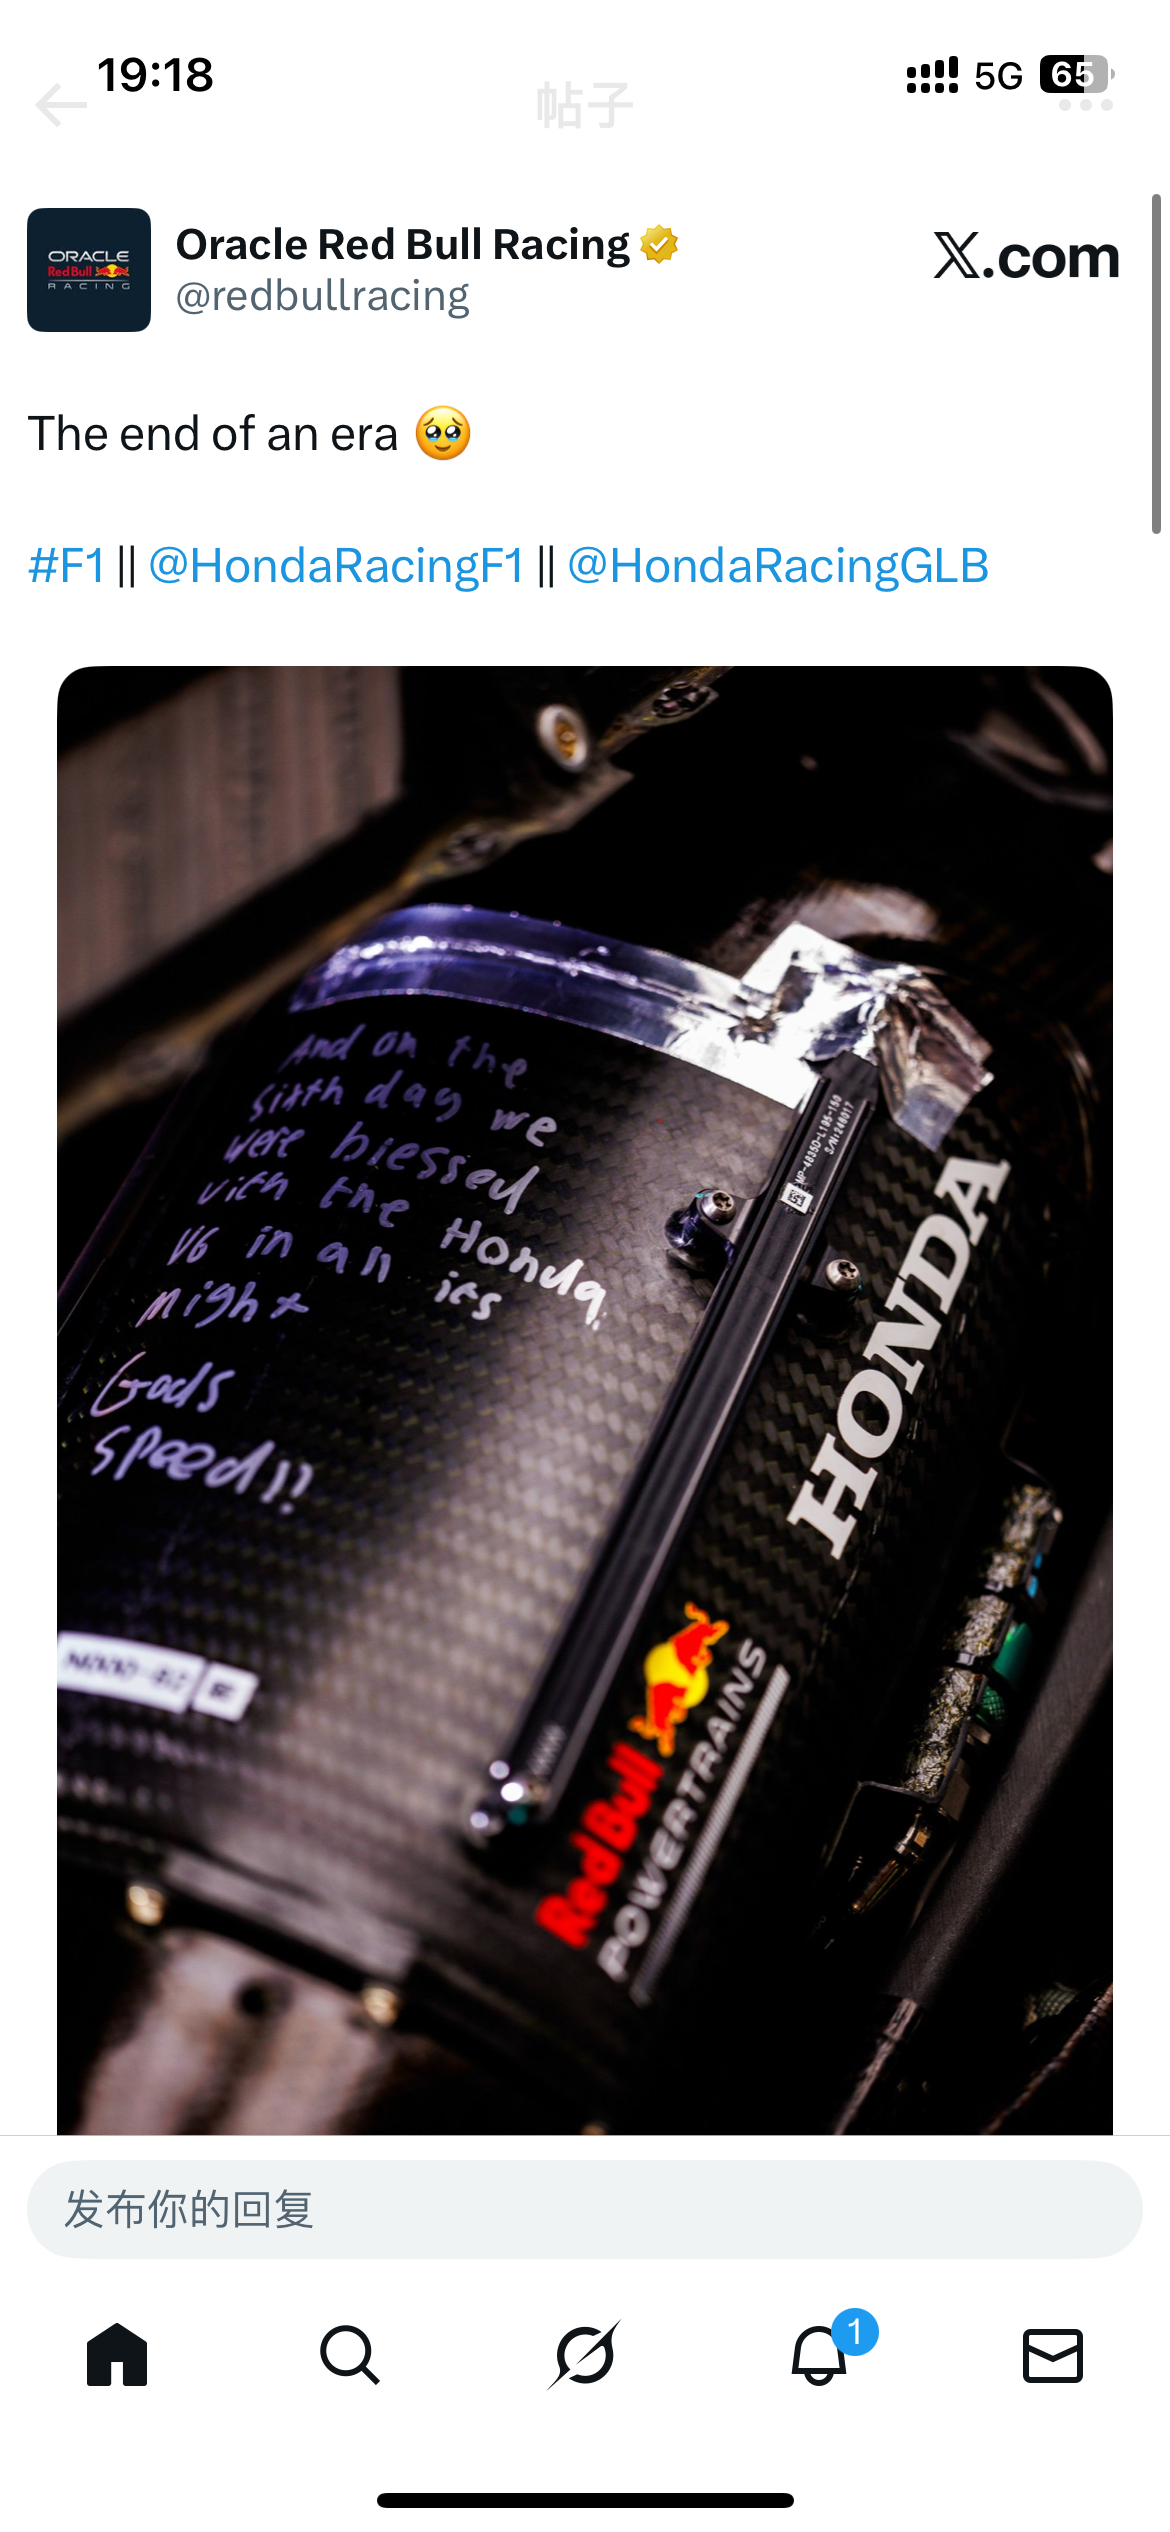 19:18
5G
65
帖子
ORACLE
Red Bull
RACING
Oracle Red Bull Racing
@redbullracing
X.com
The end of an era 🥹
#F1 || @HondaRacingF1 || @HondaRacingGLB
And on the
sixth day we
were blessed
with the Honda
V6 in all its
might
Gods
speed!!
MP-4835D-L195-150
S/N:248017
HONDA
Red Bull
POWERTRAINS
发布你的回复
1